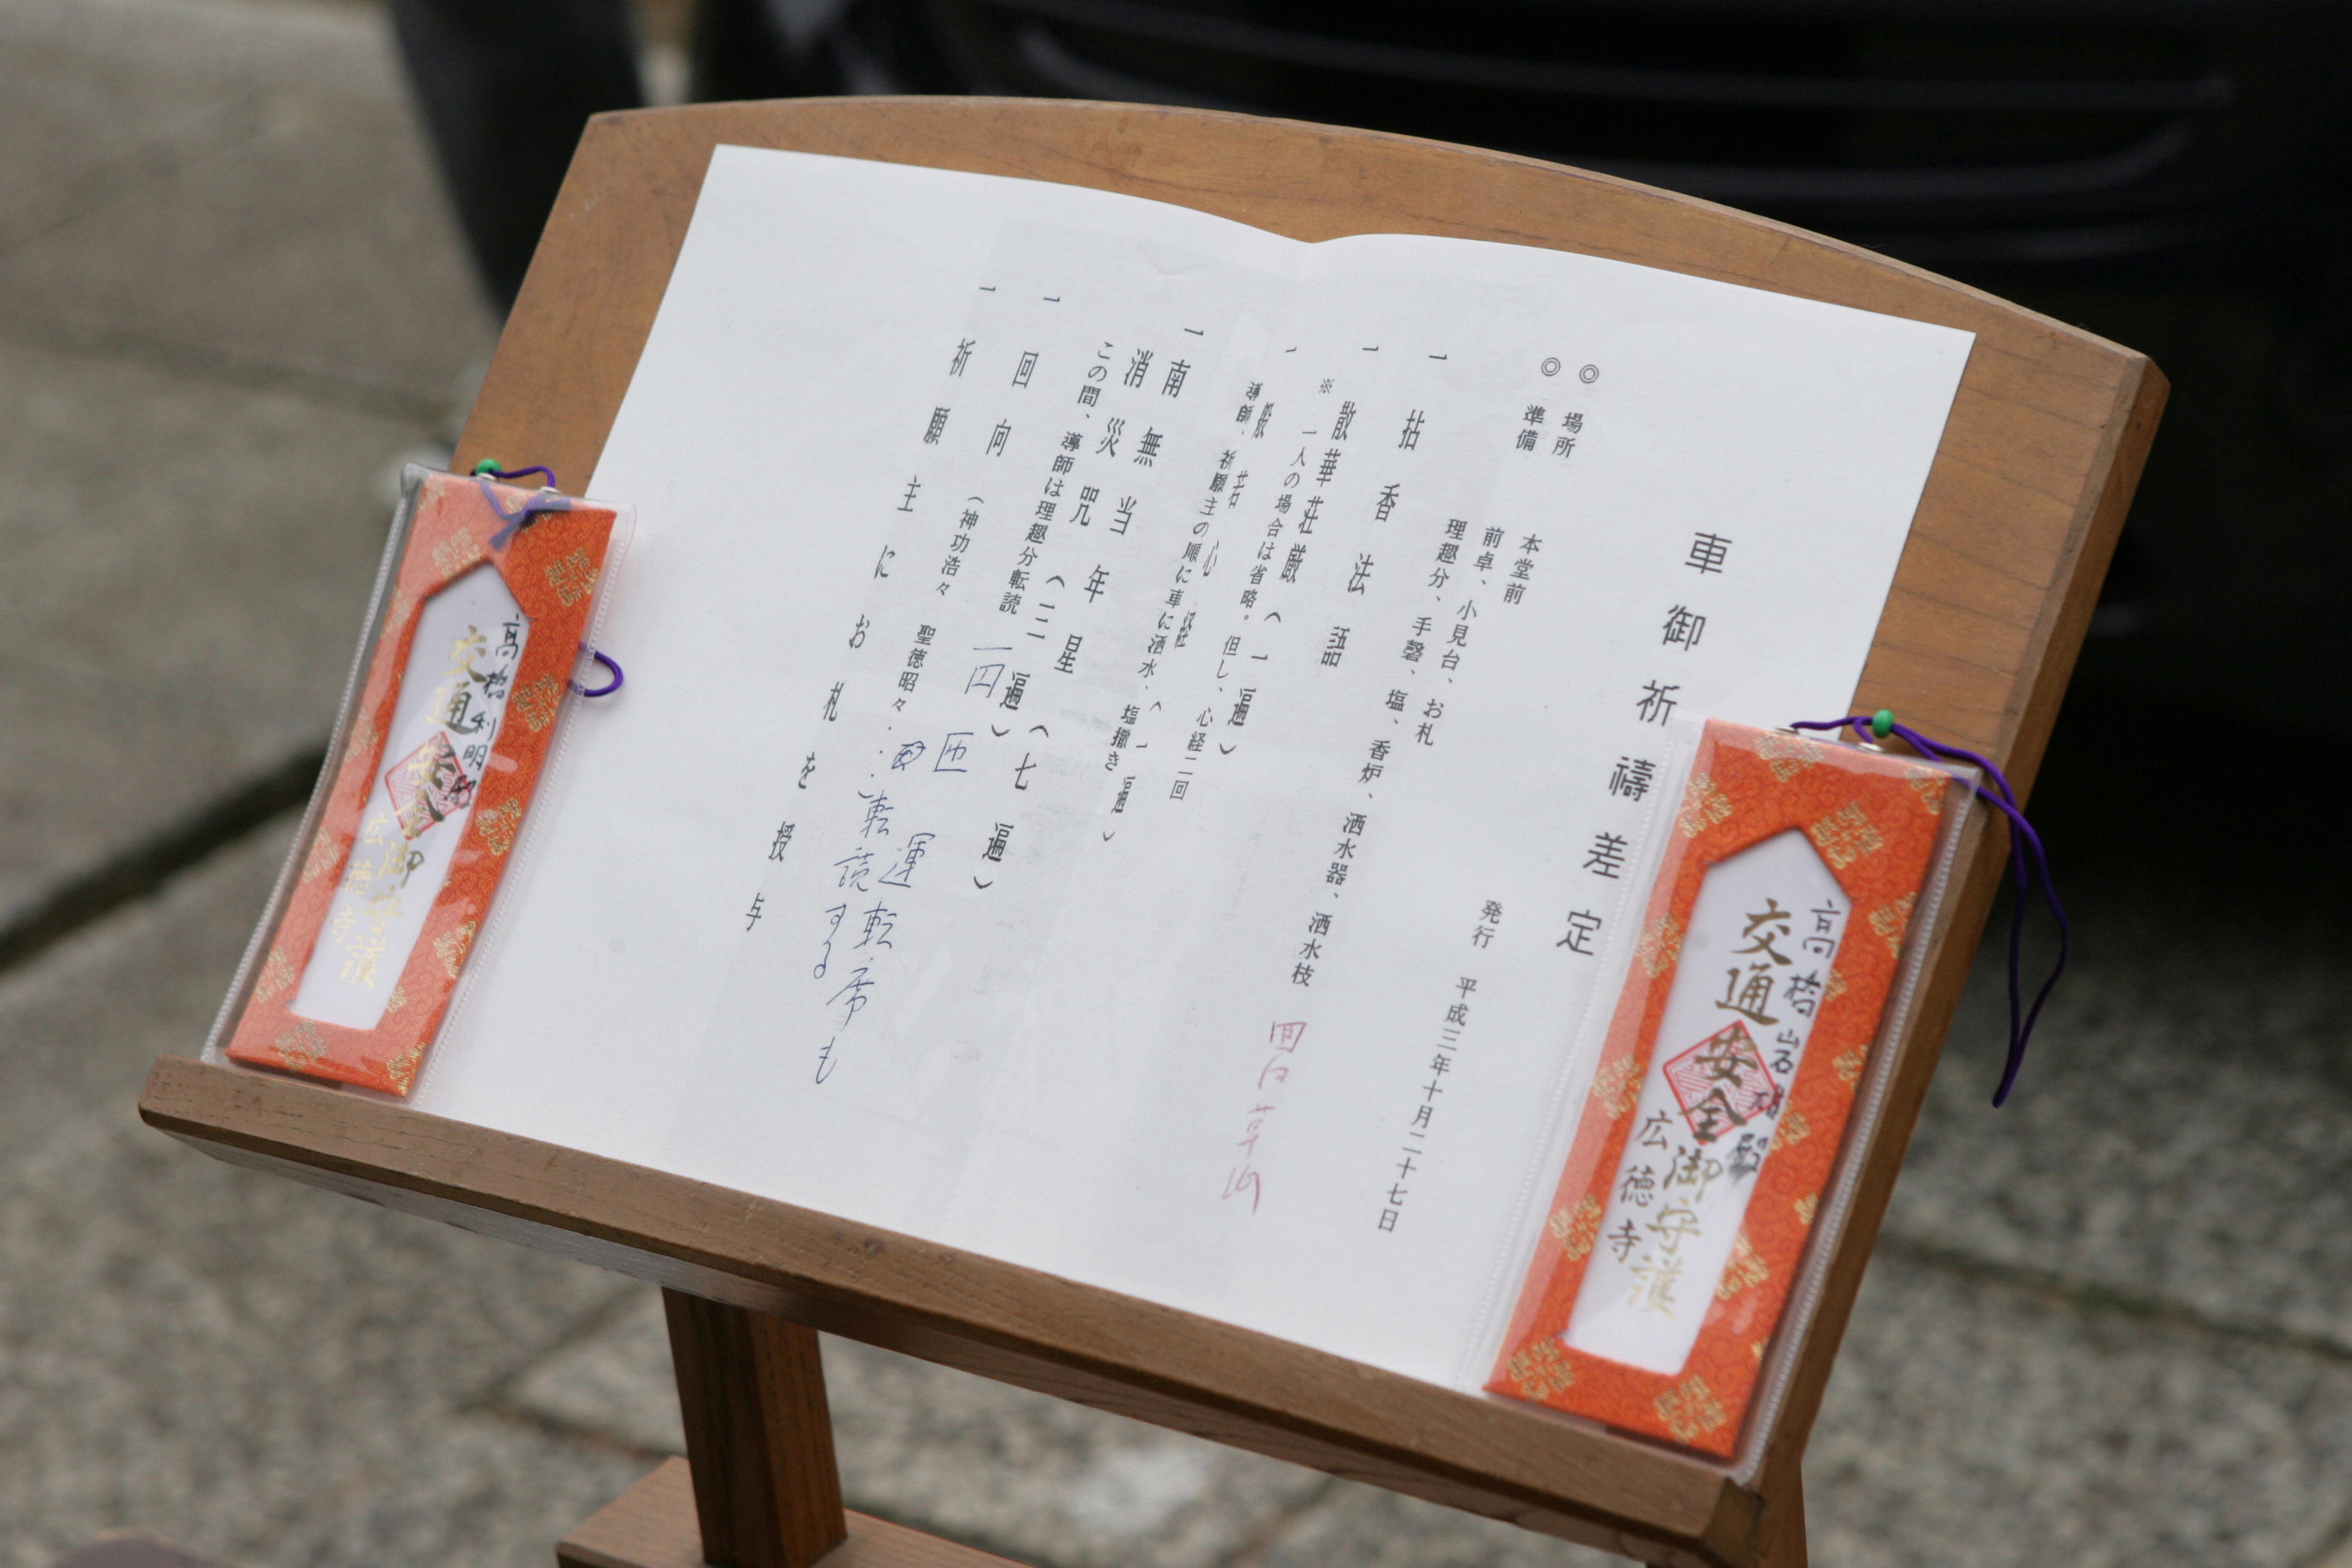 車御祈禱差定
発行 平成三年十月二十七日
◎ 場所 本堂前
◎ 準備 前卓、小見台、お札
理趣分、手磬、塩、香炉、洒水器、洒水枝
一 拈香法語
一 散華荘厳（一遍）
※ 一人の場合は省略。但し、心経二回
一 般若心経（一遍）
導師、祈願主の順に車に洒水、塩撒き
一 南無当年星（七遍）
消災咒（三遍）
この間、導師は理趣分転読
一 回向（神功浩々 聖徳昭々・・・）
一 祈願主にお札を授与
運転席も
転読する
高橋
交通安全御守護
広徳寺
高橋利明殿
交通安全御守護
広徳寺